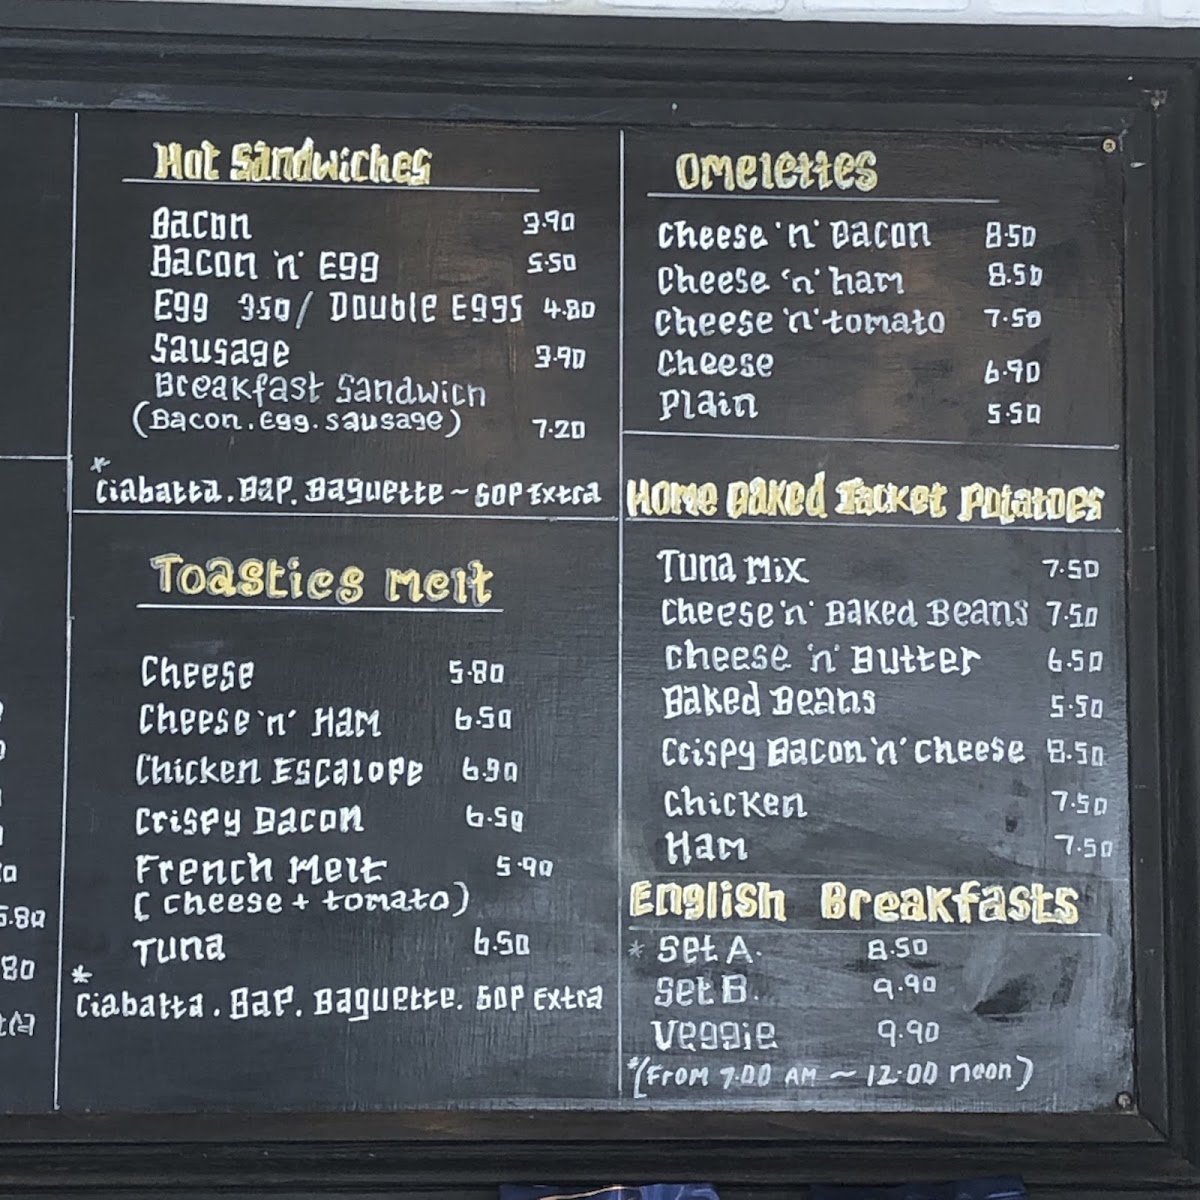 Hot Sandwiches
Bacon 3.90
Bacon 'n' Egg 5.50
Egg 3.50/ Double Eggs 4.80
Sausage 3.90
Breakfast Sandwich
(Bacon. Egg. Sausage) 7.20
*
Ciabatta. Bap. Baguette ~ 60P Extra
Toasties Melt
Cheese 5.80
Cheese 'n' Ham 6.50
Chicken Escalope 6.90
Crispy Bacon 6.50
French Melt 5.90
( cheese + tomato)
Tuna 6.50
*
Ciabatta. Bap. Baguette. 60P Extra
Omelettes
Cheese 'n' Bacon 8.50
Cheese 'n' ham 8.50
Cheese 'n' tomato 7.50
Cheese 6.90
Plain 5.50
Home Baked Jacket Potatoes
Tuna Mix 7.50
Cheese 'n' Baked Beans 7.50
Cheese 'n' Butter 6.50
Baked Beans 5.50
Crispy Bacon 'n' cheese 8.50
Chicken 7.50
Ham 7.50
English Breakfasts
* Set A. 8.50
Set B. 9.90
Veggie 9.90
*(From 7.00 AM ~ 12.00 noon)